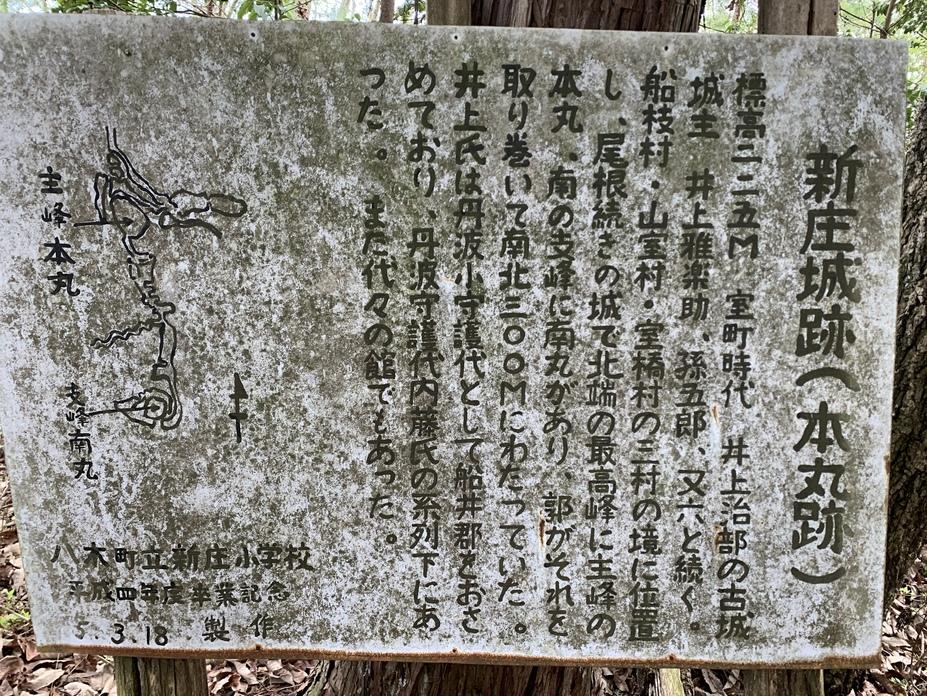 新庄城跡(本丸跡)
標高二二五M 室町時代 井上治部の古城
城主 井上雅楽助、孫五郎、又六と続く。
船枝村・山室村・室橋村の三村の境に位置
し、尾根続きの城で北端の最高峰に主峰の
本丸、南の支峰に南丸があり、郭がそれを
取り巻いて南北三〇〇Mにわたっていた。
井上氏は丹波小守護代として船井郡をおさ
めており、丹波守護代内藤氏の系列下にあ
った。また代々の館でもあった。
主峰本丸
支峰南丸
八木町立新庄小学校
平成四年度卒業記念
5.3.18 製作